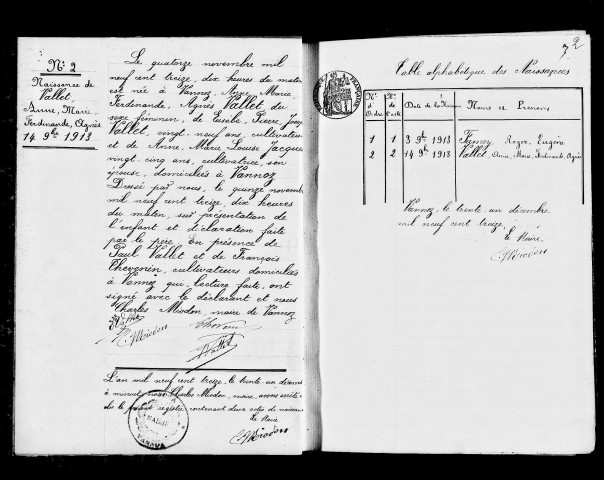 Nº 2
Naissance de
Vallet,
Anne, Marie
Ferdinande, Agnès
14 9bre 1913
Le quatorze novembre mil
neuf cent treize, dix heures du matin
est née à Vannoz, Anne, Marie
Ferdinande, Agnès Vallet, du
sexe féminin, de Eusèbe Pierre
Vallet, vingt-neuf ans, cultivateur
et de Anne, Marie Louise Jacques
vingt cinq ans, cultivatrice, son
épouse, domiciliés à Vannoz
Dressé par nous, le quinze novembre
mil neuf cent treize, dix heures
du matin, sur présentation de
l'enfant et déclaration faite
par le père, en présence de
Paul Vallet et de François
Thevenin, cultivateurs domiciliés
à Vannoz qui, lecture faite, ont
signé avec le déclarant et nous
Charles Miodon, maire de Vannoz
C. Miodon
Thevenin
Vallet
L'an mil neuf cent treize, le trente-un décembre
à minuit, nous Charles Miodon, maire, avons arrêté
le présent registre contenant deux actes de naissance
Le Maire
C. Miodon
MAIRIE
2
Table alphabétique des Naissances
Nº d'Ordre
Nº de l'acte
Date de la Naissance
Noms et Prénoms
1 1 3 9bre 1913 Roger, Eugène
2 2 14 9bre 1913 Vallet, Anne, Marie, Ferdinande, Agnès
Vannoz, le trente-un décembre
mil neuf cent treize,
Le Maire,
C. Miodon